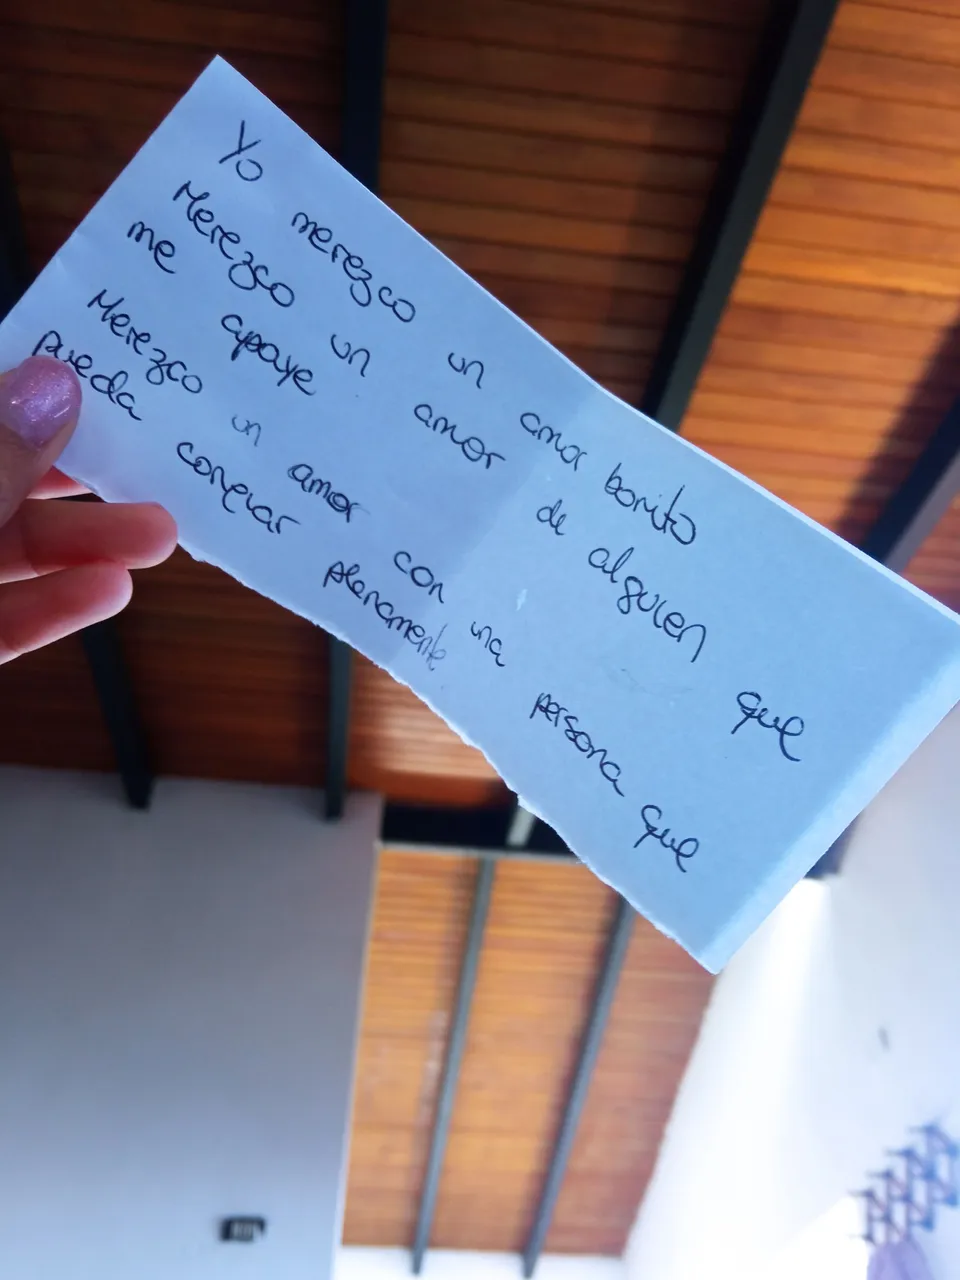 Yo merezco un amor bonito
Merezco un amor de alguien que
me apoye
Merezco un amor con una persona que
pueda conectar plenamente